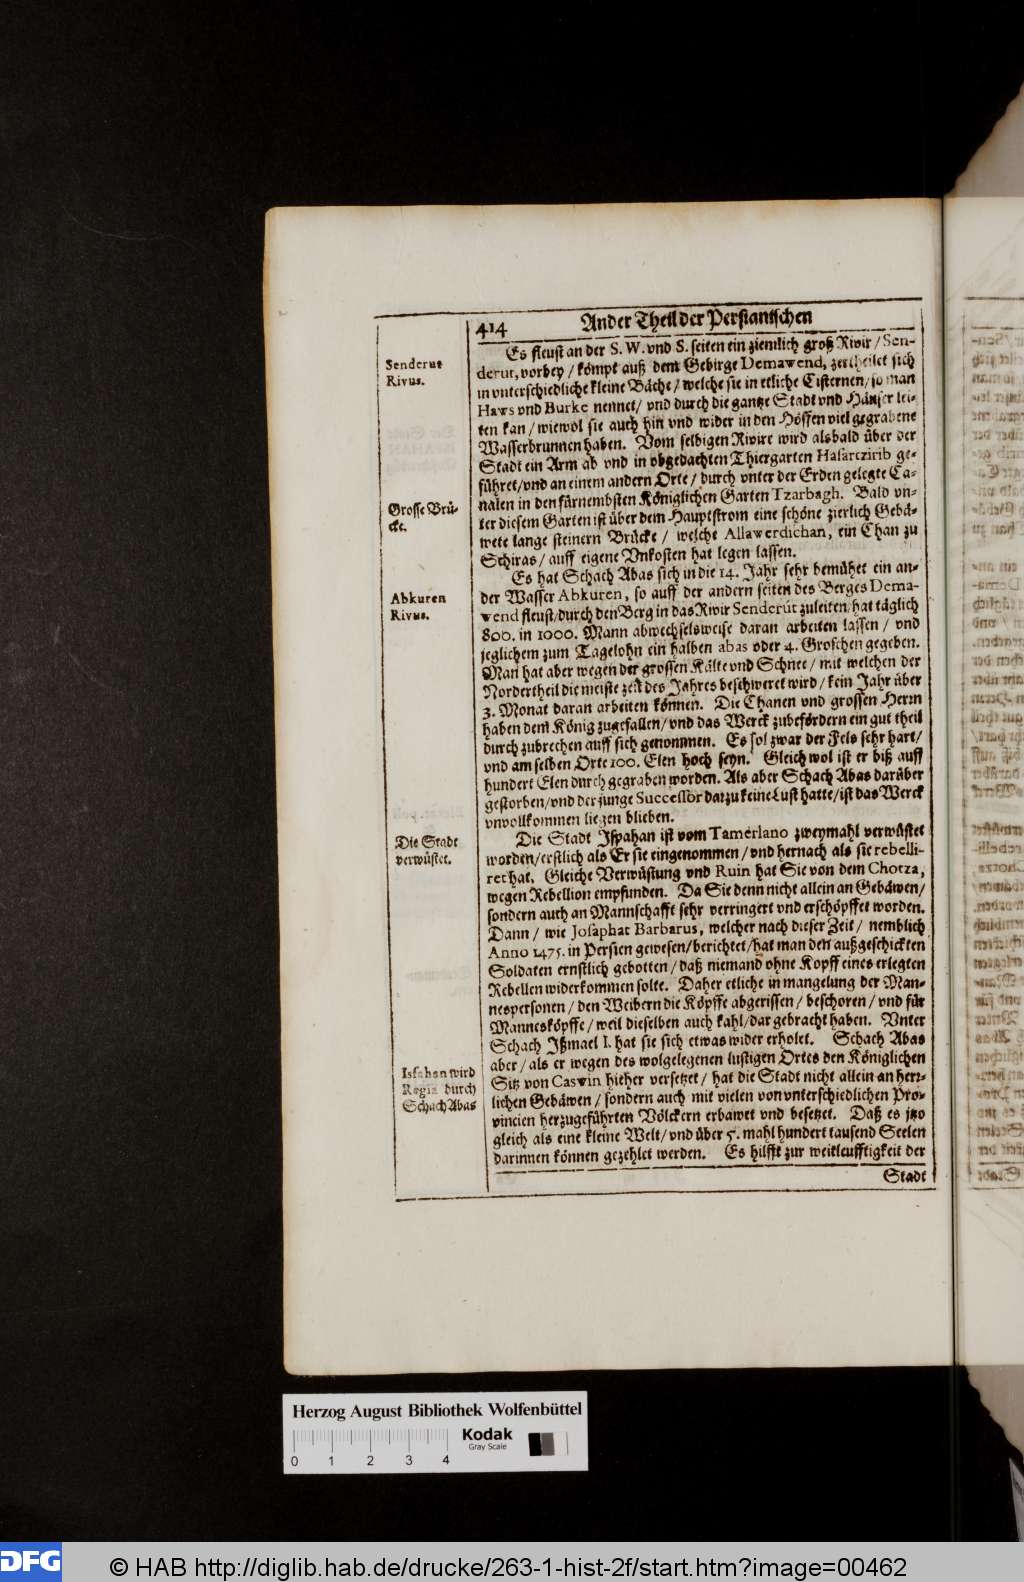 414 Ander Theil der Persianischen
Senderut
Rivus.
Es fleust an der S. W. vnd S. seiten ein ziemlich groß Rivir / Sen-
derut, vorbey / kömpt auß dem Gebirge Demawend, zertheilet sich
in vnterschiedliche kleine Bäche / welche sie in etliche Cisternen / so man
Haws vnd Burke nennet / vnd durch die gantze Stadt vnd Häuser lei-
ten kan / wiewol sie auch hin vnd wider in den Höffen viel gegrabene
Wasserbrunnen haben. Vom selbigen Rivire wird alsbald über der
Stadt ein Arm ab vnd in obgedachten Thiergarten Hasartzirib ge-
führet / vnd an einem andern Orte / durch vnter der Erden gelegte Ca-
nälen in den fürnembsten Königlichen Garten Tzarbagh. Bald vn-
Grosse Brü-
cke.
ter diesem Garten ist über dem Hauptstrom eine schöne zierlich Gebä-
wete lange steinern Brücke / welche Allawerdichan, ein Chan zu
Schiras / auff eigene Vnkosten hat legen lassen.
Es hat Schach Abas sich in die 14. Jahr sehr bemühet ein an-
Abkuren
Rivus.
der Wasser Abkuren, so auff der andern seiten des Berges Dema-
wend fleust / durch den Berg in das Rivir Senderút zuleiten / hat täglich
800. in 1000. Mann abwechselsweise daran arbeiten lassen / vnd
jeglichem zum Tagelohn ein halben abas oder 4. Groschen gegeben.
Man hat aber wegen der grossen Kälte vnd Schnee / mit welchen der
Nordertheil die meiste zeit des Jahres beschweret wird / kein Jahr über
3. Monat daran arbeiten können. Die Chanen vnd grossen Herrn
haben dem König zugefallen / vnd das Werck zubefördern ein gut theil
durch zubrechen auff sich genommen. Es sol zwar der Fels sehr hart /
vnd am selben Orte 100. Elen hoch seyn. Gleich wol ist er biß auff
hundert Elen durch gegraben worden. Als aber Schach Abas darüber
gestorben / vnd der junge Successor darzu keine Lust hatte / ist das Werck
vnvollkommen liegen blieben.
Die Stadt
verwüstet.
Die Stadt Ispahan ist vom Tamerlano zweymahl verwüstet
worden / erstlich als Er sie eingenommen / vnd hernach als sie rebelli-
ret hat. Gleiche Verwüstung vnd Ruin hat Sie von dem Chotza,
wegen Rebellion empfunden. Da Sie denn nicht allein an Gebäwen /
sondern auch an Mannschafft sehr verringert vnd erschöpffet worden.
Dann / wie Josaphat Barbarus, welcher nach dieser Zeit / nemblich
Anno 1475. in Persien gewesen / berichtet / hat man den außgeschickten
Soldaten ernstlich gebotten / daß niemand ohne Kopff eines erlegten
Rebellen widerkommen solte. Daher etliche in mangelung der Man-
nespersonen / den Weibern die Köpffe abgerissen / beschoren / vnd für
Manneskopffe / weil dieselben auch kahl / dar gebracht haben. Vnter
Schach Ißmael I. hat sie sich etwas wider erholet. Schach Abas
Isfahan wird
Regia durch
Schach Abas
aber / als er wegen des wolgelegenen lustigen Ortes den Königlichen
Sitz von Caswin hieher versetzet / hat die Stadt nicht allein an herr-
lichen Gebäwen / sondern auch mit vielen von vnterschiedlichen Pro-
vincien herzugeführten Völckern erbawet vnd besetzet. Daß es jtzo
gleich als eine kleine Welt / vnd über 5. mahl hundert tausend Seelen
darinnen können gezehlet werden. Es hilfft zur weitleufftigkeit der
Stadt
Herzog August Bibliothek Wolfenbüttel
Kodak
Gray Scale
0 1 2 3 4
DFG © HAB http://diglib.hab.de/drucke/263-1-hist-2f/start.htm?image=00462